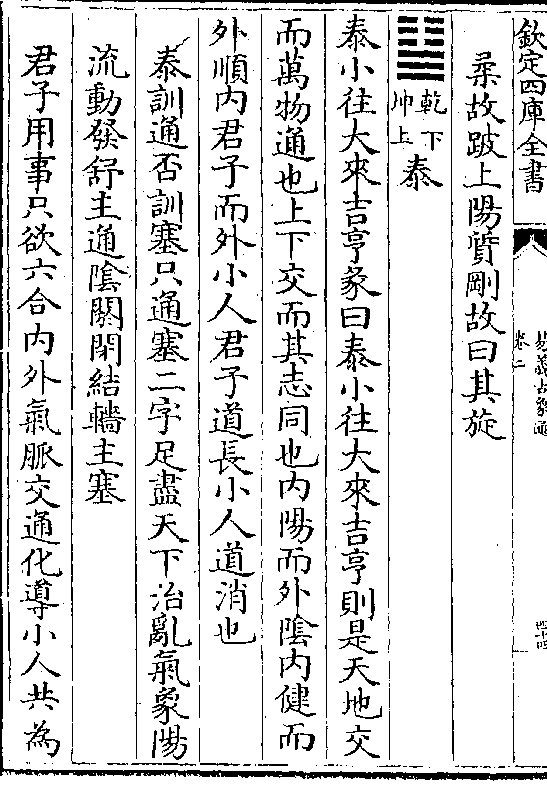 欽定四庫全書
易義古象通
卷二
四十四
柔故跛上陽質剛故曰其旋
乾下
坤上
泰
泰小往大來吉亨彖曰泰小往大來吉亨則是天地交
而萬物通也上下交而其志同也内陽而外陰内健而
外順内君子而外小人君子道長小人道消也
泰訓通否訓塞只通塞二字足盡天下治亂氣象陽
流動發舒主通陰闗閉結轖主塞
君子用事只欲六合内外氣脈交通化導小人共為